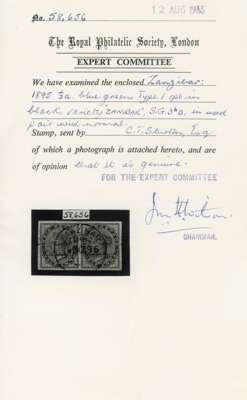 No. 58,656
12 AUG 1965
The Royal Philatelic Society, London
EXPERT COMMITTEE
We have examined the enclosed Zanzibar:
1895 ½a. blue green Type 1 opt in
black variety "ZANZIDAR", S.G. 3 in used
pair with normal.
Stamp, sent by Esq
of which a photograph is attached hereto, and are
of opinion that it is genuine.
FOR THE EXPERT COMMITTEE
CHAIRMAN.
58,656